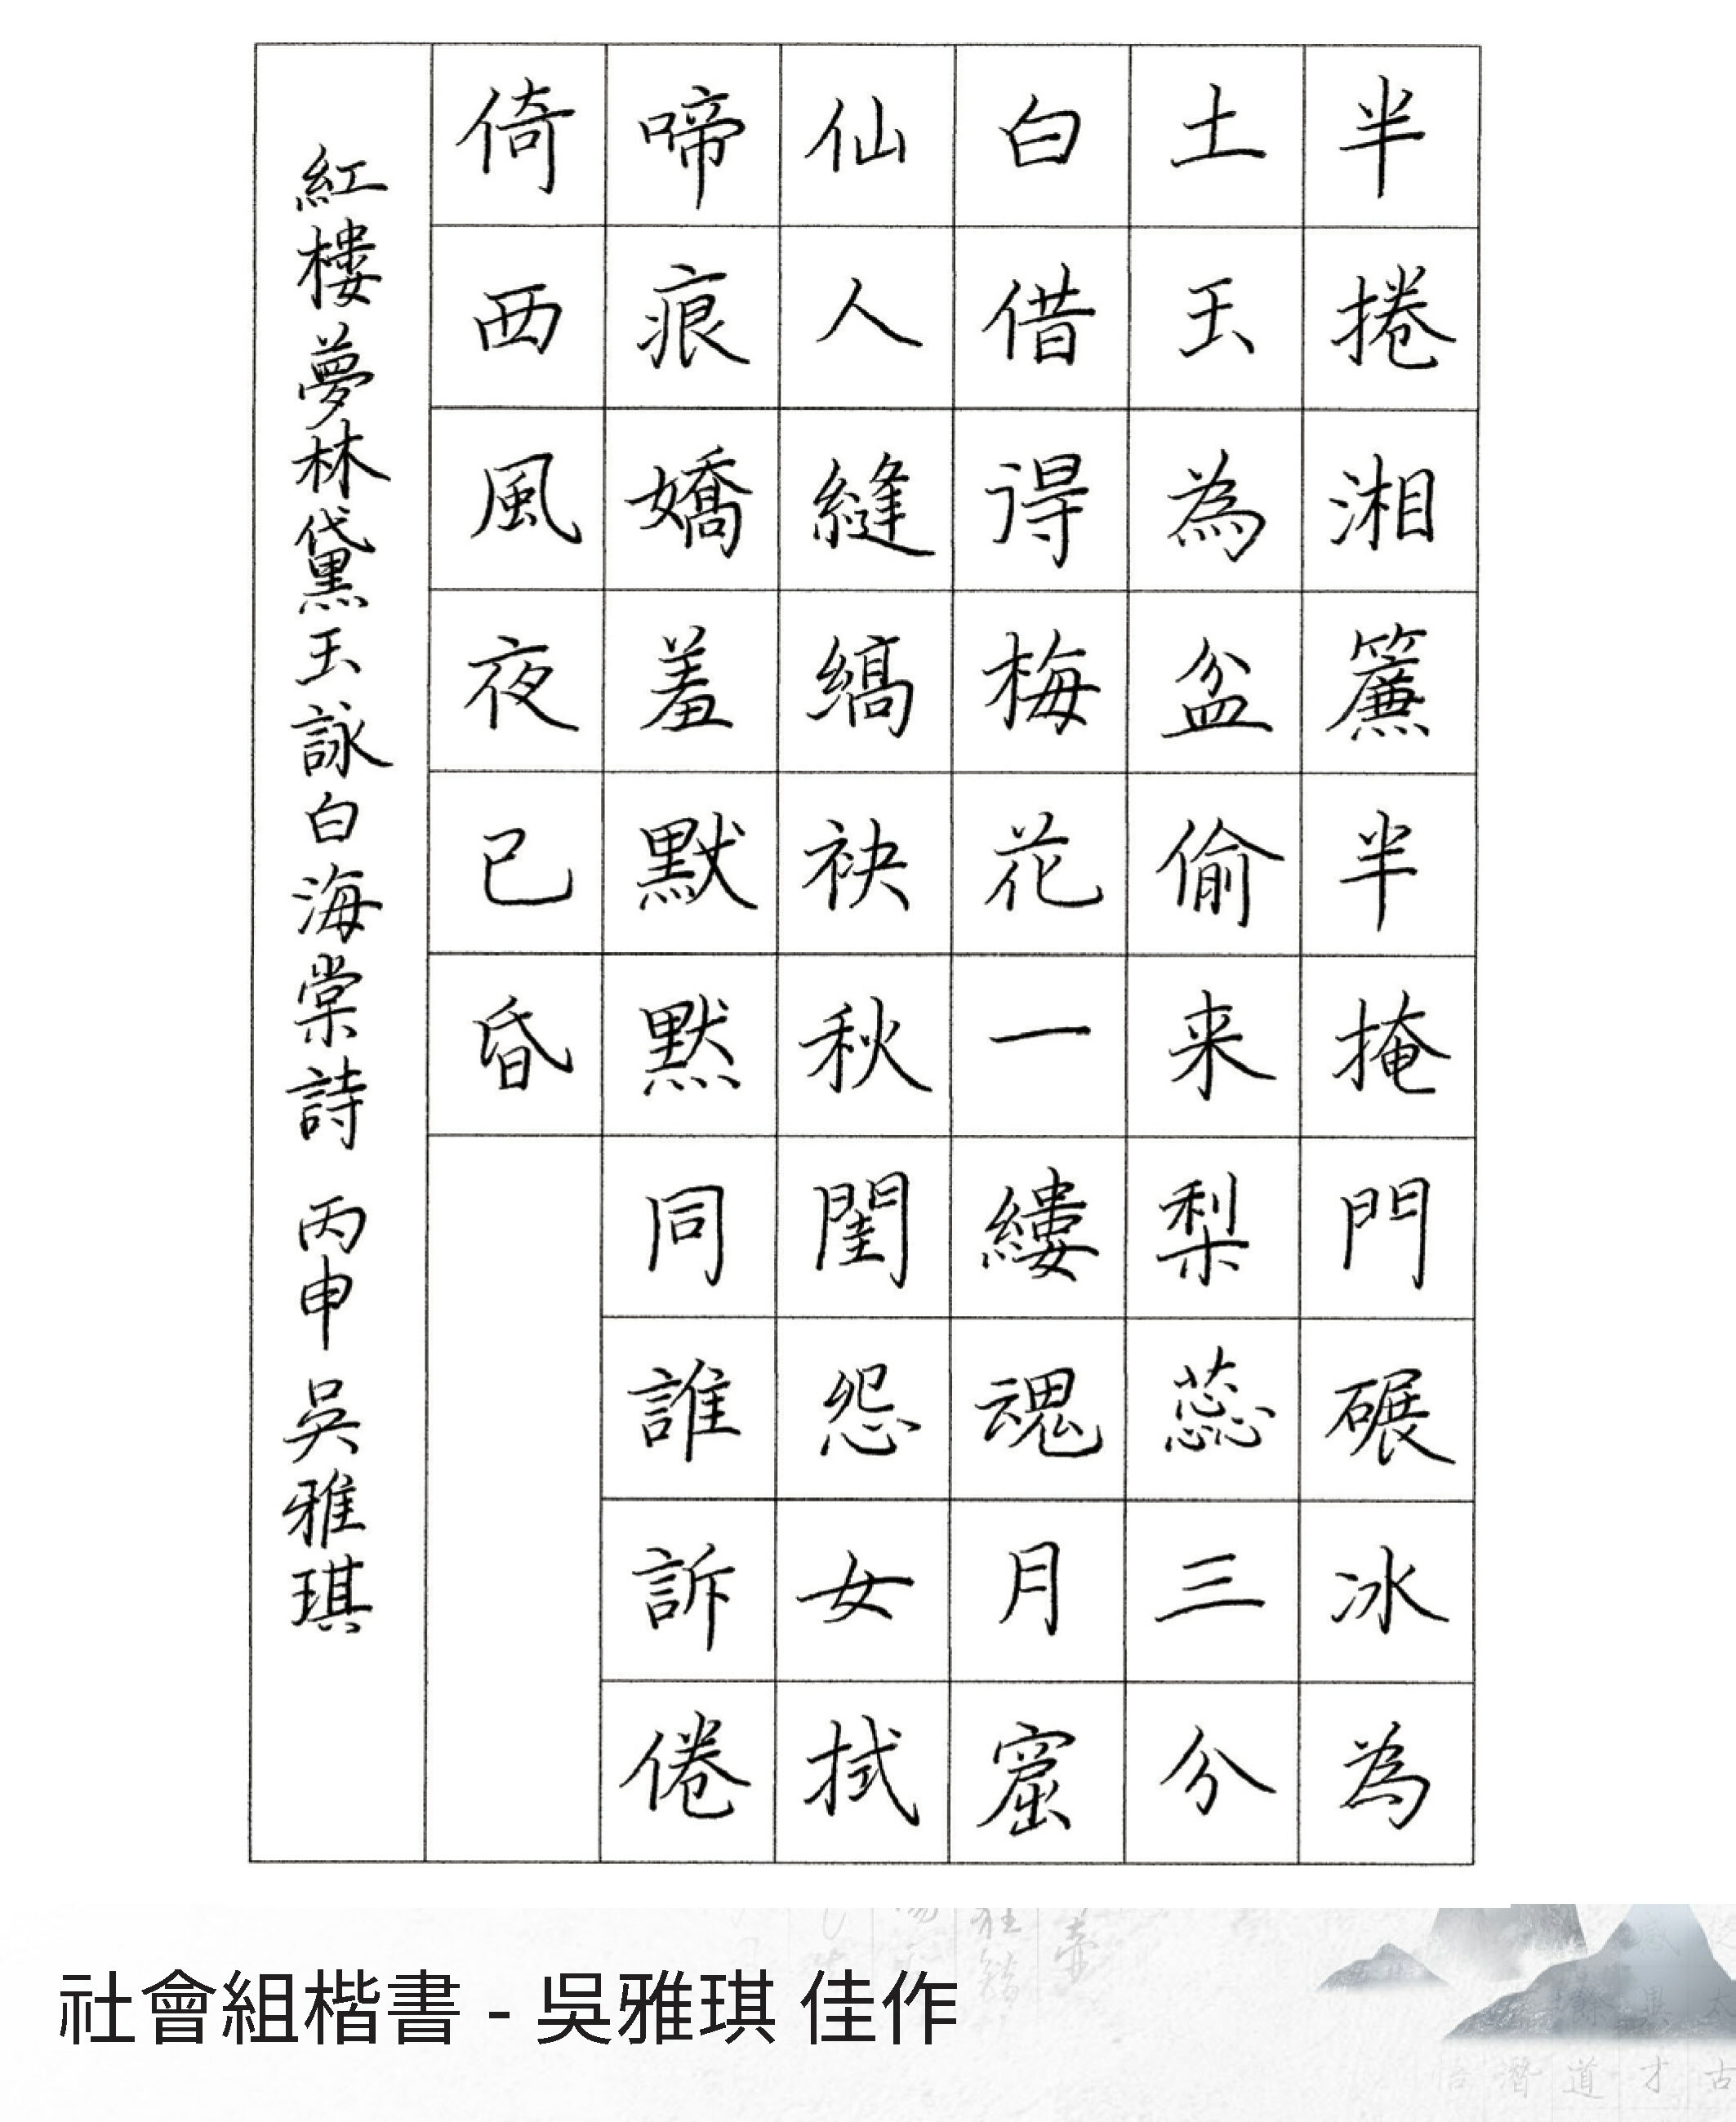 半捲湘簾半掩門碾冰為
土玉為盆偷来梨蕊三分
白借得梅花一縷魂月窟
仙人縫縞袂秋閨怨女拭
啼痕嬌羞默默同誰訴倦
倚西風夜已昏
紅樓夢林黛玉詠白海棠詩 丙申 吳雅琪
社會組楷書 - 吳雅琪 佳作